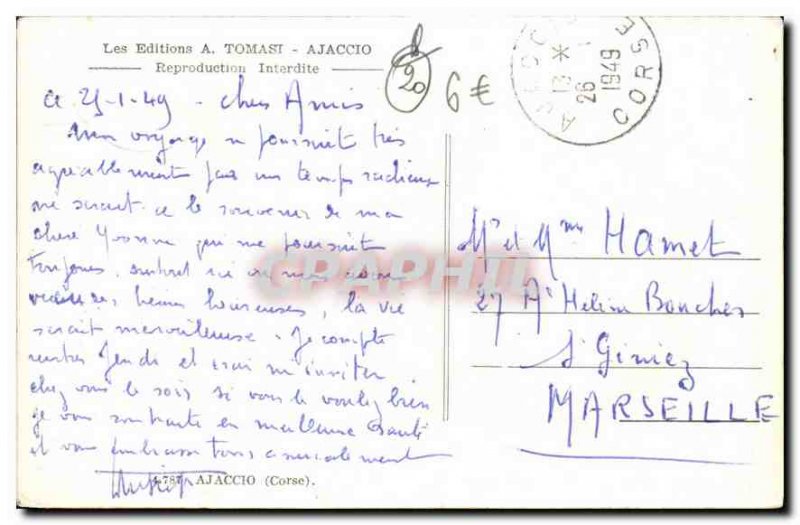 Les Editions A. TOMASI - AJACCIO
Reproduction Interdite
20
6 €
AJACCIO
13 * 26 - 1
1949
CORSE
a 25-1-49 - chers Amis
Mon voyage se poursuit très
agréablement par un temps radieux
ne serait-ce le souvenir de ma
chère Yvonne qui me poursuit
toujours, surtout ici où nous avons
heures heureuses, la vie
serait merveilleuse. Je compte
rentrer Jeudi et vrai m'inviter
chez vous le soir si vous le voulez bien
je vous souhaite en meilleure santé
et vous embrasse tous amicalement
CPAPHIL
Mr et Mme Hamet
27 Ad Hélène Boucher
St Giniez
MARSEILLE
787 AJACCIO (Corse).